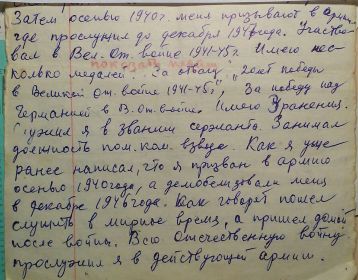 Затем осенью 1940г. меня призывают в армию,
где прослужил до декабря 1946года. Участво-
вал в Вел. От. войне 1941-45г. Имею нес-
колько медалей: "За отвагу", "20 лет победы
в Великой От. войне 1941-45г.", За победу над
Германией в В. От. войне. Имею 3 ранения.
Служил я в звании сержанта. Занимал
должность пом. ком. взвода. Как я уже
ранее написал, что я призван в армию
осенью 1940года, а демобилизовали меня
в декабре 1946года. Как говорят пошел
служить в мирное время, а пришел домой
после войны. Всю Отечественную войну
прослужил я в действующей армии.